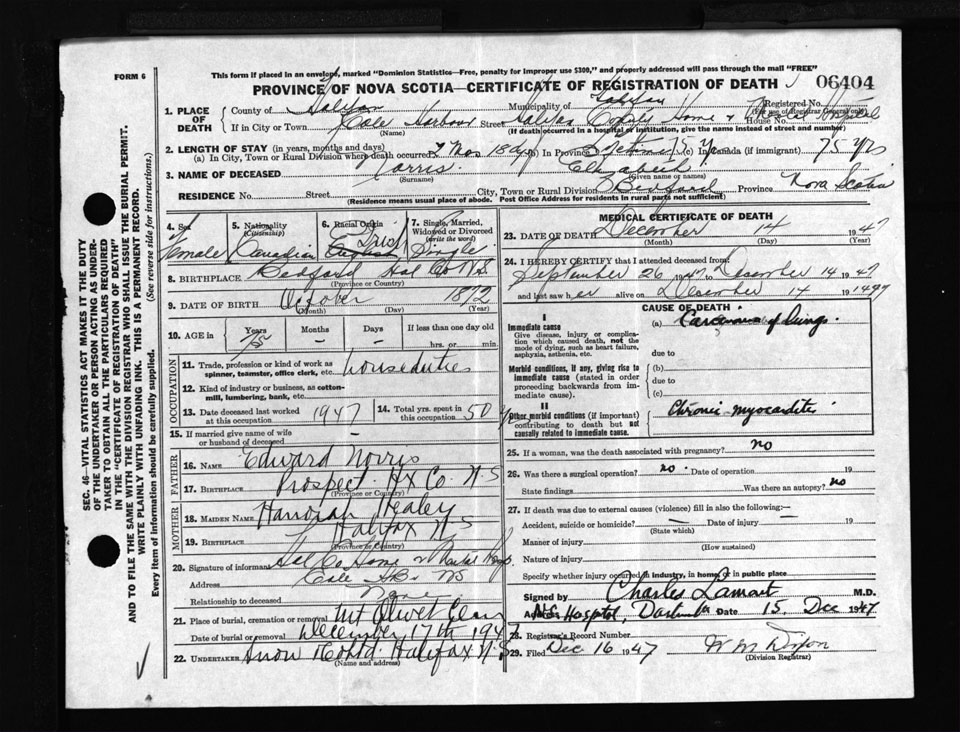 FORM 6
This form if placed in an envelope, marked "Dominion Statistics—Free, penalty for improper use $300," and properly addressed will pass through the mail "FREE"
PROVINCE OF NOVA SCOTIA—CERTIFICATE OF REGISTRATION OF DEATH
06404
1. PLACE OF DEATH
County of Halifax Municipality of Halifax Registered No.
(For use of Registrar General only)
If in City or Town Cole Harbour Street Halifax County Home & Mental Hospital House No.
(Name) (If death occurred in a hospital or institution, give the name instead of street and number)
2. LENGTH OF STAY (in years, months and days)
(a) In City, Town or Rural Division where death occurred 2 Mos 18 dys (b) in Province Lifetime 75 Yr (c) in Canada (if immigrant) 75 yrs
3. NAME OF DECEASED Norris Elizabeth
(Surname) (Given name or names)
RESIDENCE No. Street City, Town or Rural Division Bedford Province Nova Scotia
(Residence means usual place of abode. Post Office Address for residents in rural parts not sufficient)
SEC. 46—VITAL STATISTICS ACT MAKES IT THE DUTY
OF THE UNDERTAKER OR PERSON ACTING AS UNDER-
TAKER TO OBTAIN ALL THE PARTICULARS REQUIRED
IN THE "CERTIFICATE OF REGISTRATION OF DEATH"
AND TO FILE THE SAME WITH THE DIVISION REGISTRAR WHO SHALL ISSUE THE BURIAL PERMIT.
WRITE PLAINLY WITH UNFADING INK. THIS IS A PERMANENT RECORD.
Every item of Information should be carefully supplied. (See reverse side for instructions.)
4. Sex Female
5. Nationality (Citizenship) Canadian
6. Racial Origin English Irish
7. Single, Married, Widowed or Divorced (write the word) Single
8. BIRTHPLACE Bedford Hal Co N.S.
(Province or Country)
9. DATE OF BIRTH October 1872
(Month) (Day) (Year)
10. AGE in Years 75 Months – Days – If less than one day old hrs. or min.
OCCUPATION
11. Trade, profession or kind of work as spinner, teamster, office clerk, etc. houseduties
12. Kind of industry or business, as cotton-mill, lumbering, bank, etc.
13. Date deceased last worked at this occupation 1947
14. Total yrs. spent in this occupation 50 yrs
15. If married give name of wife or husband of deceased –
FATHER
16. NAME Edward Norris
17. BIRTHPLACE Prospect. Hx Co. N.S
(Province or Country)
MOTHER
18. MAIDEN NAME Hannorah Healey
19. BIRTHPLACE Halifax N.S
(Province or Country)
20. Signature of informant Hal Co Home & Mental Hosp.
Address Cole Hbr NS
Relationship to deceased None
21. Place of burial, cremation or removal Mt Olivet Cem
Date of burial or removal December 17th 1947
22. UNDERTAKER Snow & Co Ltd. Halifax N.S
(Name and address)
MEDICAL CERTIFICATE OF DEATH
23. DATE OF DEATH December 14 1947
(Month) (Day) (Year)
24. I HEREBY CERTIFY that I attended deceased from:
September 26 1947 to December 14 1947
and last saw her alive on December 14 1947
CAUSE OF DEATH
I
Immediate cause
Give disease, injury or complication which caused death, not the mode of dying, such as heart failure, asphyxia, asthenia, etc.
(a) Carcinoma of Lungs.
due to
Morbid conditions, if any, giving rise to immediate cause (stated in order proceeding backwards from immediate cause).
(b)
due to
(c)
II
Other morbid conditions (if important) contributing to death but not causally related to immediate cause.
Chronic myocarditis
25. If a woman, was the death associated with pregnancy? no
26. Was there a surgical operation? no. Date of operation 19
State findings Was there an autopsy? no
27. If death was due to external causes (violence) fill in also the following:— –
Accident, suicide or homicide? Date of injury 19
(State which)
Manner of injury
(How sustained)
Nature of injury
Specify whether injury occurred in industry, in home, or in public place
Signed by Charles Lamont M.D.
Address N.S. Hospital, Dartmouth Date 15. Dec 1947
28. Registrar's Record Number
29. Filed Dec 16 1947 W M Dixon
(Division Registrar)